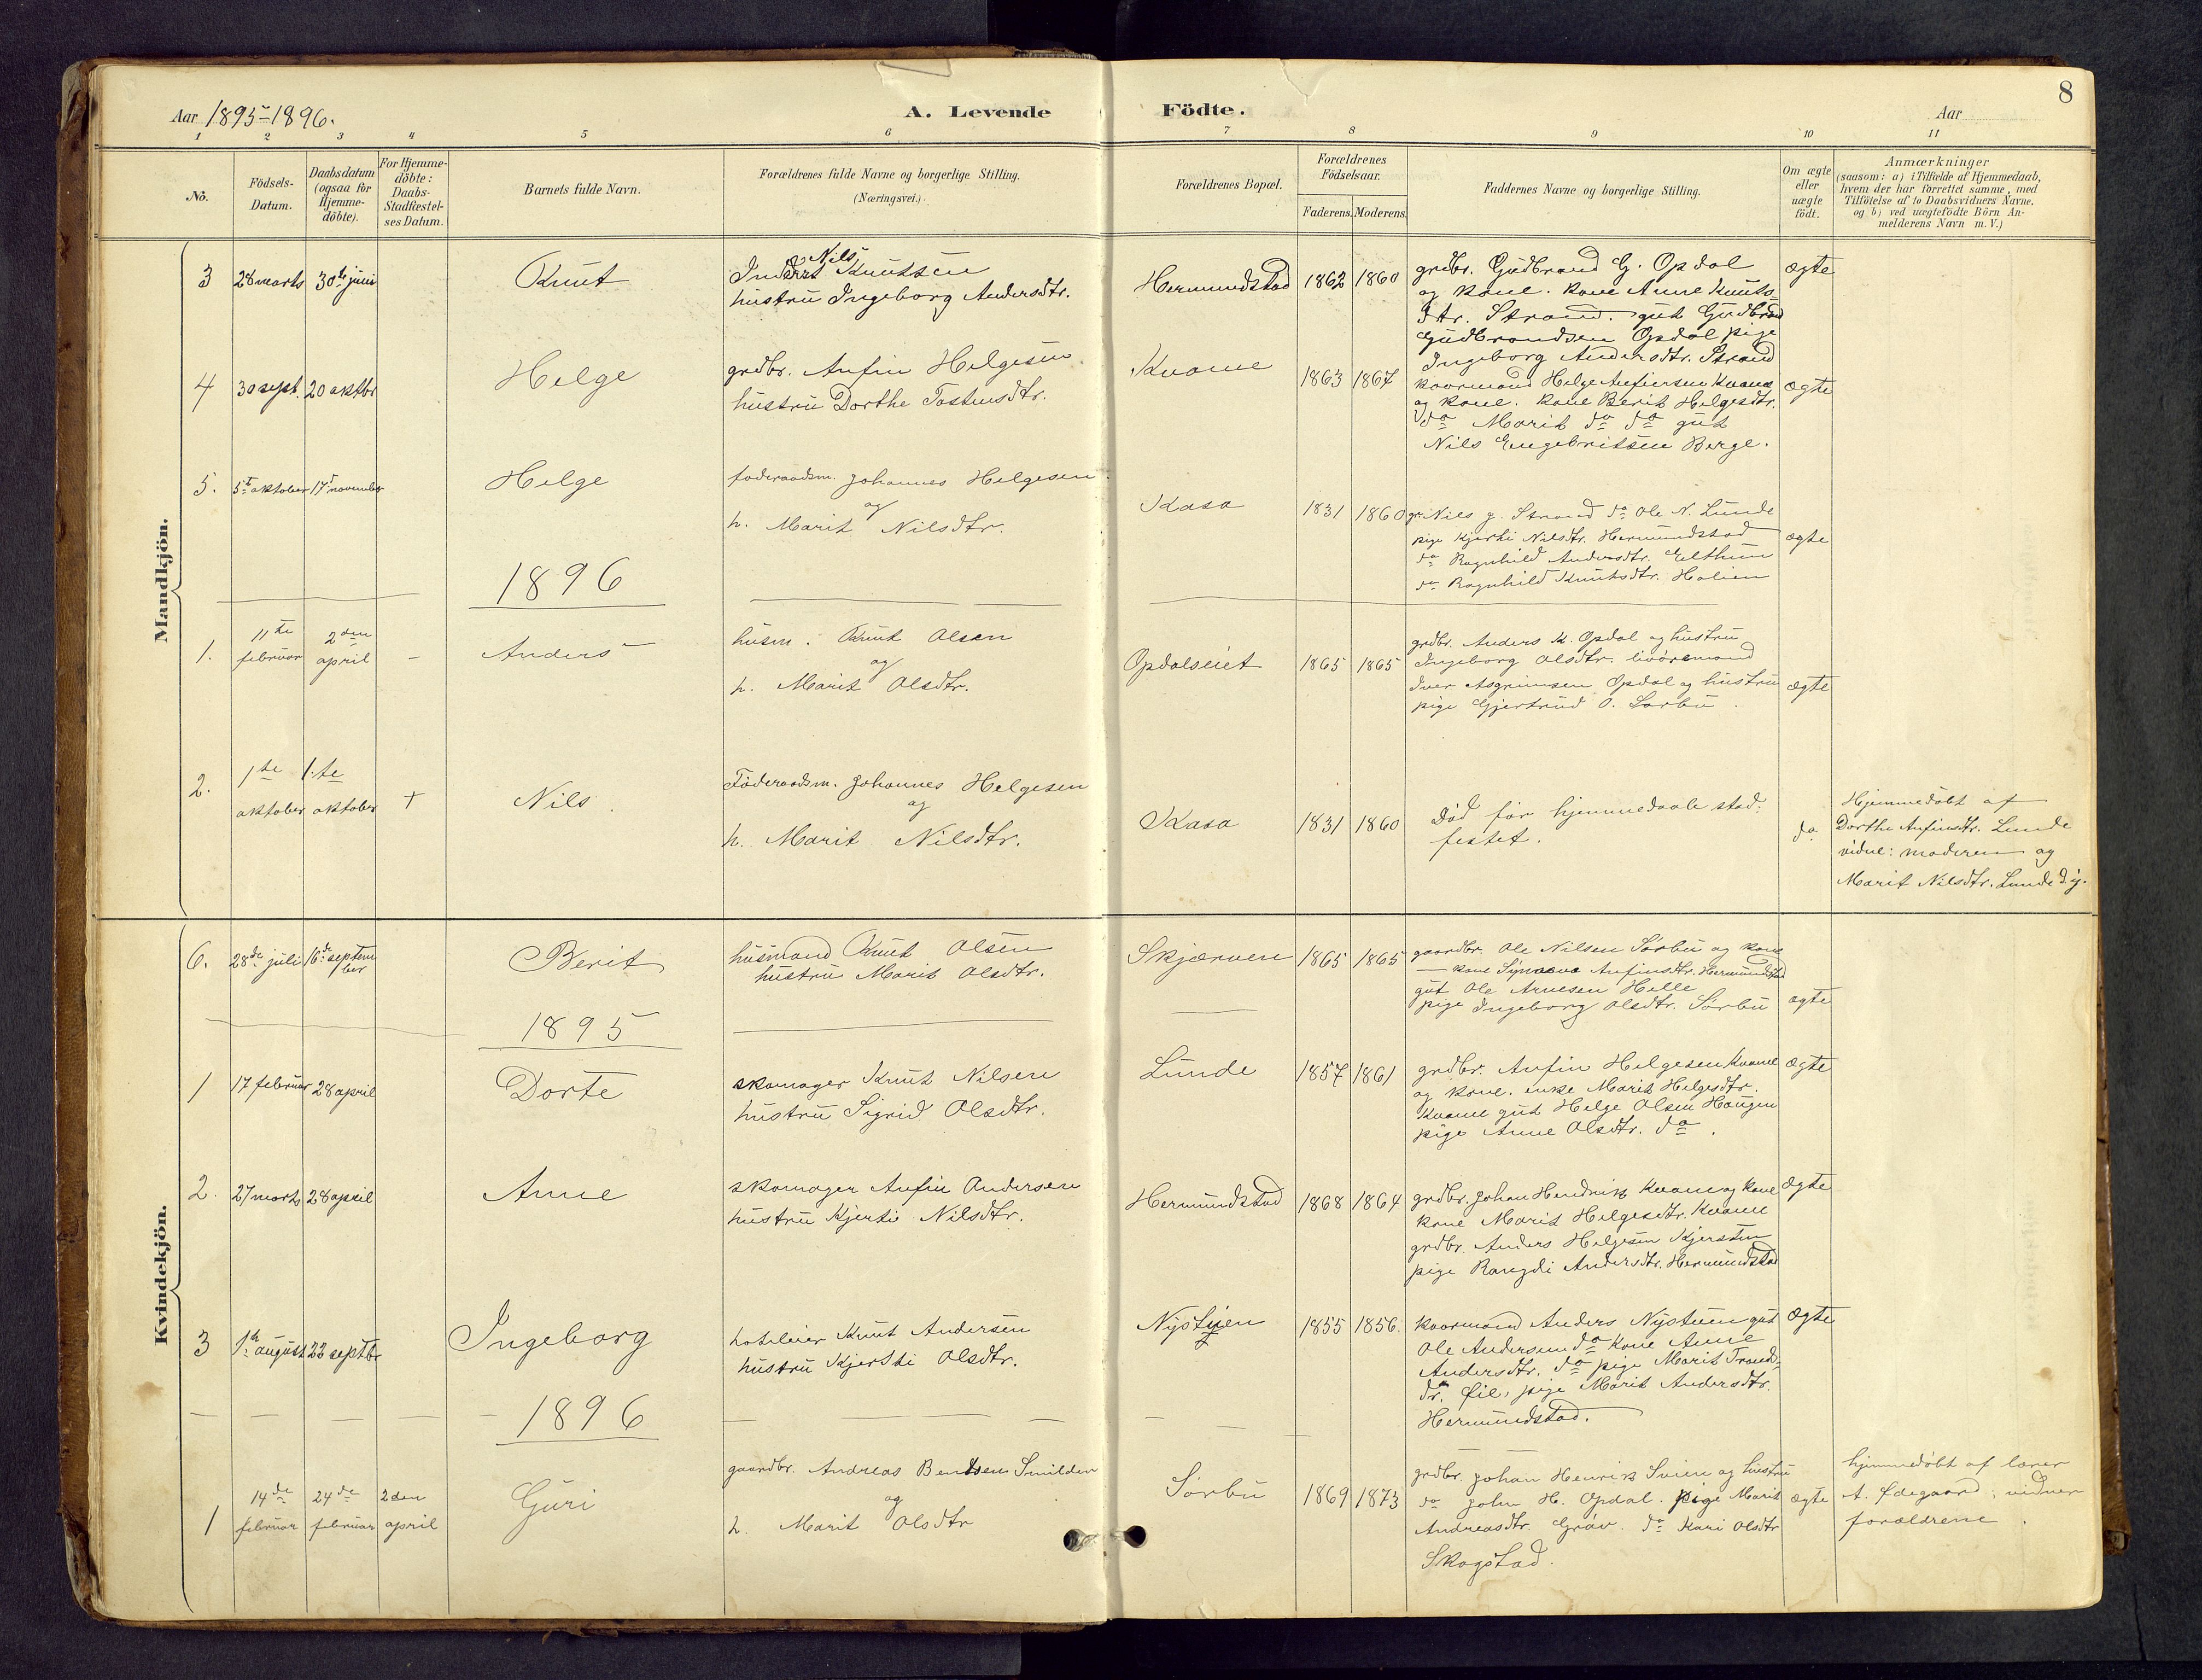 Aar 1895-1896.
A. Levende Födte.
Aar
8
1 2 3 4 5 6 7 8 9 10 11
No.
Födsels-Datum.
Daabsdatum (ogsaa for Hjemme-döbte).
For Hjemme-döbte: Daabs-Stadfæstel-ses Datum.
Barnets fulde Navn.
Forældrenes fulde Navne og borgerlige Stilling.
(Næringsvei.)
Forældrenes Bopæl.
Forældrenes Födselsaar.
Faderens. Moderens.
Faddernes Navne og borgerlige Stilling.
Om ægte eller uægte födt.
Anmærkninger
(saasom: a) i Tilfælde af Hjemmedaab,
hvem der har forrettet samme, med
Tilföielse af to Daabsvidners Navne.
og b) ved uægtefödte Börn An-
melderens Navn m. V.)
Mandkjön.
3 28 marts 30te juni Knut
Nils
Knutsen
hustru Ingeborg Andersdtr.
Hermundstad 1862 1860
grdbr. Gudbrand G. Opdal
og kone. kone Anne Knuts-
dtr. Strand. gut Gudbrand
Gudbrandsen Opdal pige
Ingeborg Andersdtr. Strand
ægte
4 30 sept. 20 oktbr Helge
grdbr. Anfin Helgesen
hustru Dorthe Tostensdtr.
Kvame 1863 1867
kaarmand Helge Anfinsen Kvame
og kone. kone Berit Helgesdtr.
do Marit do do gut
Nils Engebritsen Berge.
ægte
5. 5te oktober 17 november Helge
föderaadsm. Johannes Helgesen
og
h. Marit Nilsdtr.
Kasa 1831 1860
Nils J. Strand do Ole N. Lunde
pige Kjersti Nilsdtr. Hermundstad
do Ragnhild Andersdtr. Elthun
do Ragnhild Knutsdtr. Holien
ægte
1896
1. 11te februar 2den april - Anders
husm. Knut Olsen
og
h. Marit Olsdtr.
Opdalseiet 1865 1865
grdbr. Anders K. Opdal og hustru
Ingeborg Olsdtr. livöremand
Iver Asgrimsen Opdal og hustru
pige Gjertrud O. Sörbu.
ægte
2. 1te oktober 1.te oktober + Nils.
Föderaadsm. Johannes Helgesen
og
h. Marit Nilsdtr.
Kasa 1831 1860
Död för hjemmedaab stad-
festet.
do
Hjemmedöbt af
Dorthe Anfinsdtr. Lunde
vidne: moderen og
Marit Nilsdtr. Lunde
Kvindekjön.
6. 28de juli 16de september Berit
husmand Knut Olsen
hustru Marit Olsdtr.
Skjærven 1865 1865
gaardbr. Ole Nilsen Sörbu og kone
- kone Synnøva Anfinsdtr. Hermundstad
gut Ole Arnesen Helle
pige Ingeborg Olsdtr. Sörbu
ægte
1895
1 17 februar 28 april Dorte
skomager Knut Nilsen
hustru Sigrid Olsdtr.
Lunde 1857 1861
grdbr. Anfin Helgesen Kvame
og kone. enke Marit Helgesdtr.
Kvame gut Helge Olsen Haugen
pige Anne Olsdtr. do.
ægte
2. 27 marts 28 april Anne
skomager Anfin Andersen
hustru Kjersti Nilsdtr.
Hermundstad 1868 1864
grdbr. Johan Hendrik Kvame og kone
kone Marit Helgesdtr. Kvame
grdbr. Anders Helgesen Kjersten
pige Rangdi Andersdtr. Hermundstad
ægte
3 1te august 22 septbr Ingeborg
hoteleier Knut Andersen
hustru Kjersti Olsdtr.
Nystuen 1855 1856.
kaarmand Anders Nystuen gut
Ole Andersen do kone Anne
Andersdtr. do pige Marit Trond-
dtr. Öie, pige Marit Andersdtr.
Hermundstad.
ægte
1896
1 14de februar 24de februar 2den april Guri
gaardbr. Andreas Bendsen Smilden
og
h. Marit Olsdtr
Sörbu 1869 1873
grdbr. Johan Henrik Svien og hustru
do John H. Opdal. pige Marit
Andreasdtr. Gråv. do Kari Olsdtr
Skogstad.
ægte
hjemmedöbt af lærer
A. Ödegaard; vidner
forældrene.